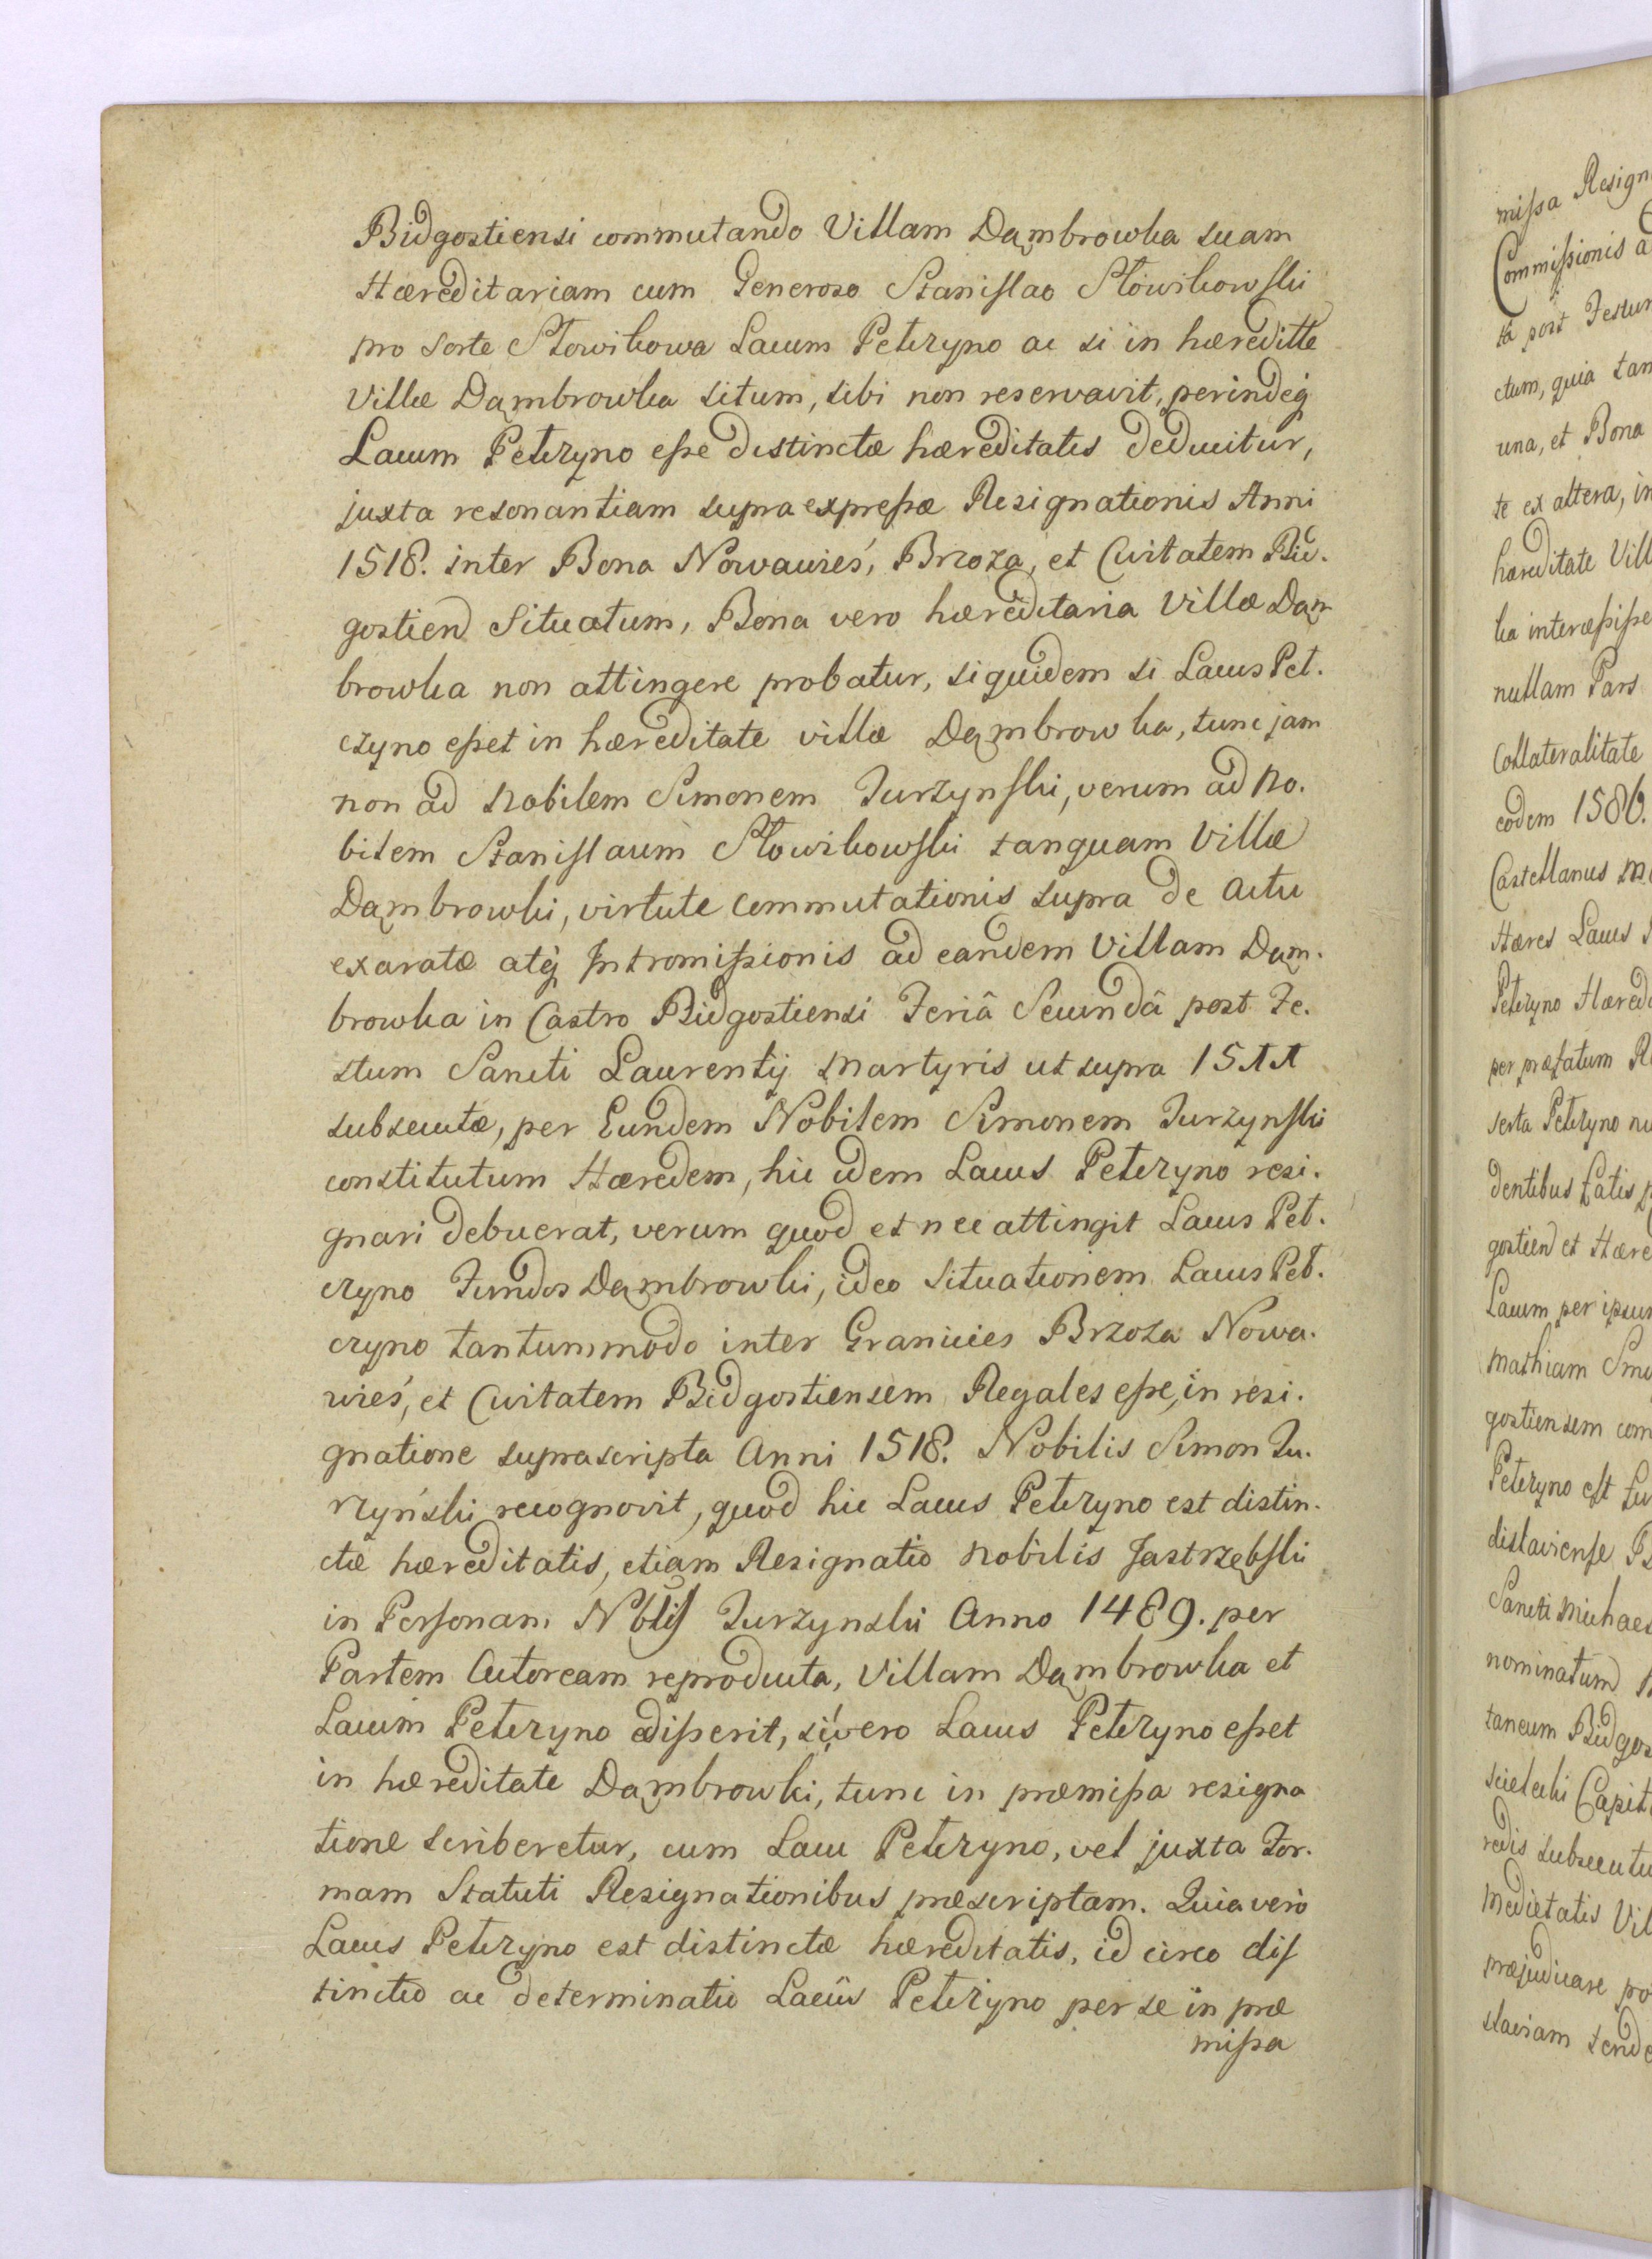 Bidgostiensi commutando Villam Dąmbrowka suam
Hæreditariam cum Generoso Stanislao Słowikowski
pro sorte Słowikowa Lacum Petczyno ac si in hæreditte
Villæ Dąmbrowka situm, sibi non reservavit, perindeq
Lacum Petczyno esse distinctæ hæreditatis deducitur,
juxta resonantiam supra expressæ Resignationis Anni
1518. inter Bona Nowawieś, Brzoza, et Civitatem Bid.
gostien Situatum, Bona vero hæreditaria Villæ Dąm
browka non attingere probatur, siquidem si Lacus Pet.
czyno esset in hæreditate villæ Dąmbrowka, tunc jam
non ad Nobilem Simonem Turzynski, verum ad No.
bilem Stanislaum Słowikowski tanquam Villæ
Dąmbrowki, virtute commutationis supra de actu
exaratæ atq Intromissionis ad eandem Villam Dąm.
browka in Castro Bidgostiensi Feriâ Secundâ post Fe.
stum Sancti Laurentij Martyris ut supra 1511
subsecutæ, per Eundem Nobilem Simonem Turzynski
constitutum Hæredem, hic idem Lacus Petczyno resi.
gnari debuerat, verum quod et nec attingit Lacus Pet.
czyno Fundos Dąmbrowki, ideo Situationem Lacus Pet.
czyno tantummodo inter Granicies Brzoza Nowa.
wieś, et Civitatem Bidgostiensem Regales esse, in resi.
gnatione suprascripta Anni 1518. Nobilis Simon Tu.
rzyński recognovit, quod hic Lacus Petczyno est distin.
ctæ hæreditatis, etiam Resignatio Nobilis Jastrzębski
in Personam Nblis Turzynski Anno 1489. per
Partem Actoream reproducta, Villam Dąmbrowka et
Lacum Petczyno edisserit, si vero Lacus Petczyno esset
in hæreditate Dąmbrowki, tunc in præmissa resigna
tione scriberetur, cum Lacu Petczyno, vel juxta For.
mam Statuti Resignationibus præscriptam. Quia vero
Lacus Petczyno est distinctæ hæreditatis, id circo dis
tinctio ac determinatio Lacûs Petczyno per se in præ
missa
missa Resign
Commissionis a
ta post Festum
ctum, quia tan
una, et Bona
te ex altera, in
hæreditate Vill
ka
nullam Pars
Collateralitate
eodem 1586.
Castellanus
Hæres Lacus
Petczyno Hæred
per præfatum R
Petczyno nu
dentibus
gostien et Hære
Lacum per ipsum
Mathiam Smo
gostiensem com
Petczyno est
dislaviense
Sancti Michae
nominatum
taneum Bidgos
Capit
redis subsecutu
Medietatis Vil
præjudicare po
tend